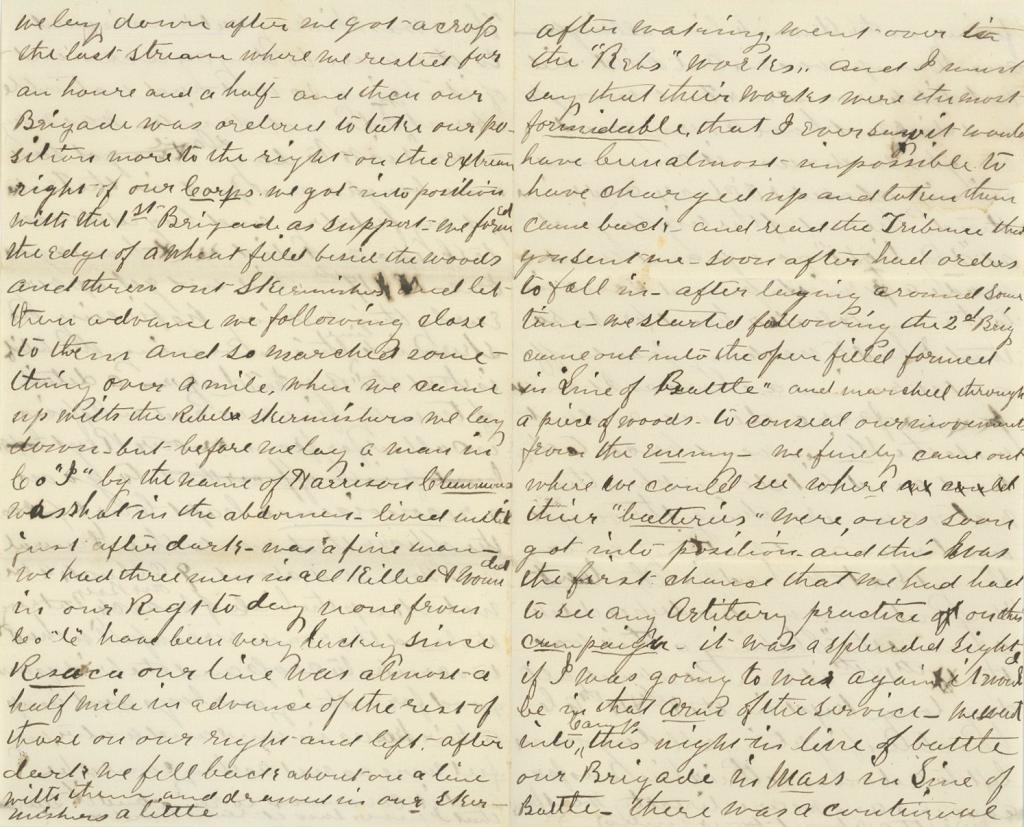 we lay down after we got across
the last stream where we rested for
an houre and a half- and then our
Brigade was ordered to take our po-
sition more to the right on the Extream
right of our Corps. we got into position
with the 1st Brigade as support- we formed
the edge of a wheat field besid the woods
and threw out Skermishers and let
them advance we following close
to them and so marched some-
thing over a mile, when we came
up with the Rebels skermishers we lay
down- but before we lay a man in
Co "I" by the name of Harrison Clemmons
was shot in the abdomen- lived until
just after dark- was a fine man-
we had three men in all Killed & Wounded
in our Regt to day none from
Co "C" have been very lucky since
Resaca our line was almost a
half mile in advance of the rest of
those on our right and left. after
dark we fell back about on a line
with them, and drawed in our Sker-
mishers a little
after making, went over to
the "Rebs" works,. and I must
say that their works were the most
formidable, that I ever saw it would
have been almost impossible to
have charged up and taken them
came back- and read the Tribune that
you sent me- soon after had orders
to fall in- after laying around some
time- we started following the 2nd Brig
came out into the open field formed
in "Line of Battle" and marched through
a piece of woods- to conseal our movements
from the Enemy- we finely came out
where we could see where
their "batteries" were ours soon
got into position- and this was
the first chance that we had had
to see any Artitary practice on this
campaign- it was a splended sight &
if I was going to war again it would
be in that Arm of the service- we went
into Camp this night in line of battle
our Brigade in Mass in Line of
Battle- there was a continual